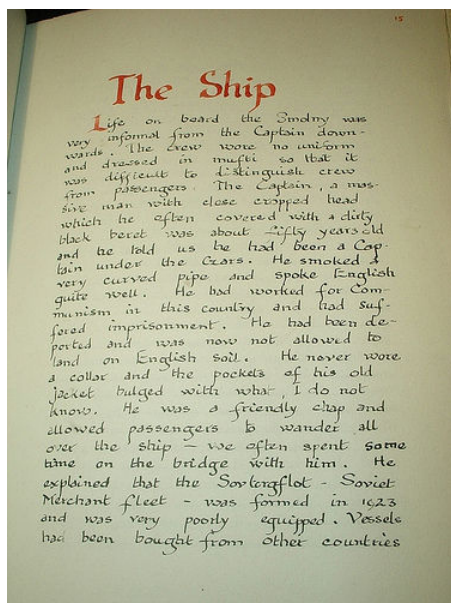 15
The Ship
Life on board the Smolny was
very informal from the Captain down-
wards. The crew wore no uniform
and dressed in mufti so that it
was difficult to distinguish crew
from passengers. The Captain, a mas-
sive man with close cropped head
which he often covered with a dirty
black beret was about fifty years old
and he told us he had been a Cap-
tain under the Czars. He smoked a
very curved pipe and spoke English
quite well. He had worked for Com-
munism in this country and had suf-
fered imprisonment. He had been de-
ported and was now not allowed to
land on English soil. He never wore
a collar and the pockets of his old
jacket bulged with what, I do not
know. He was a friendly chap and
allowed passengers to wander all
over the ship – we often spent some
time on the bridge with him. He
explained that the Sovtorgflot - Soviet
Merchant fleet - was formed in 1923
and was very poorly equipped. Vessels
had been bought from other countries